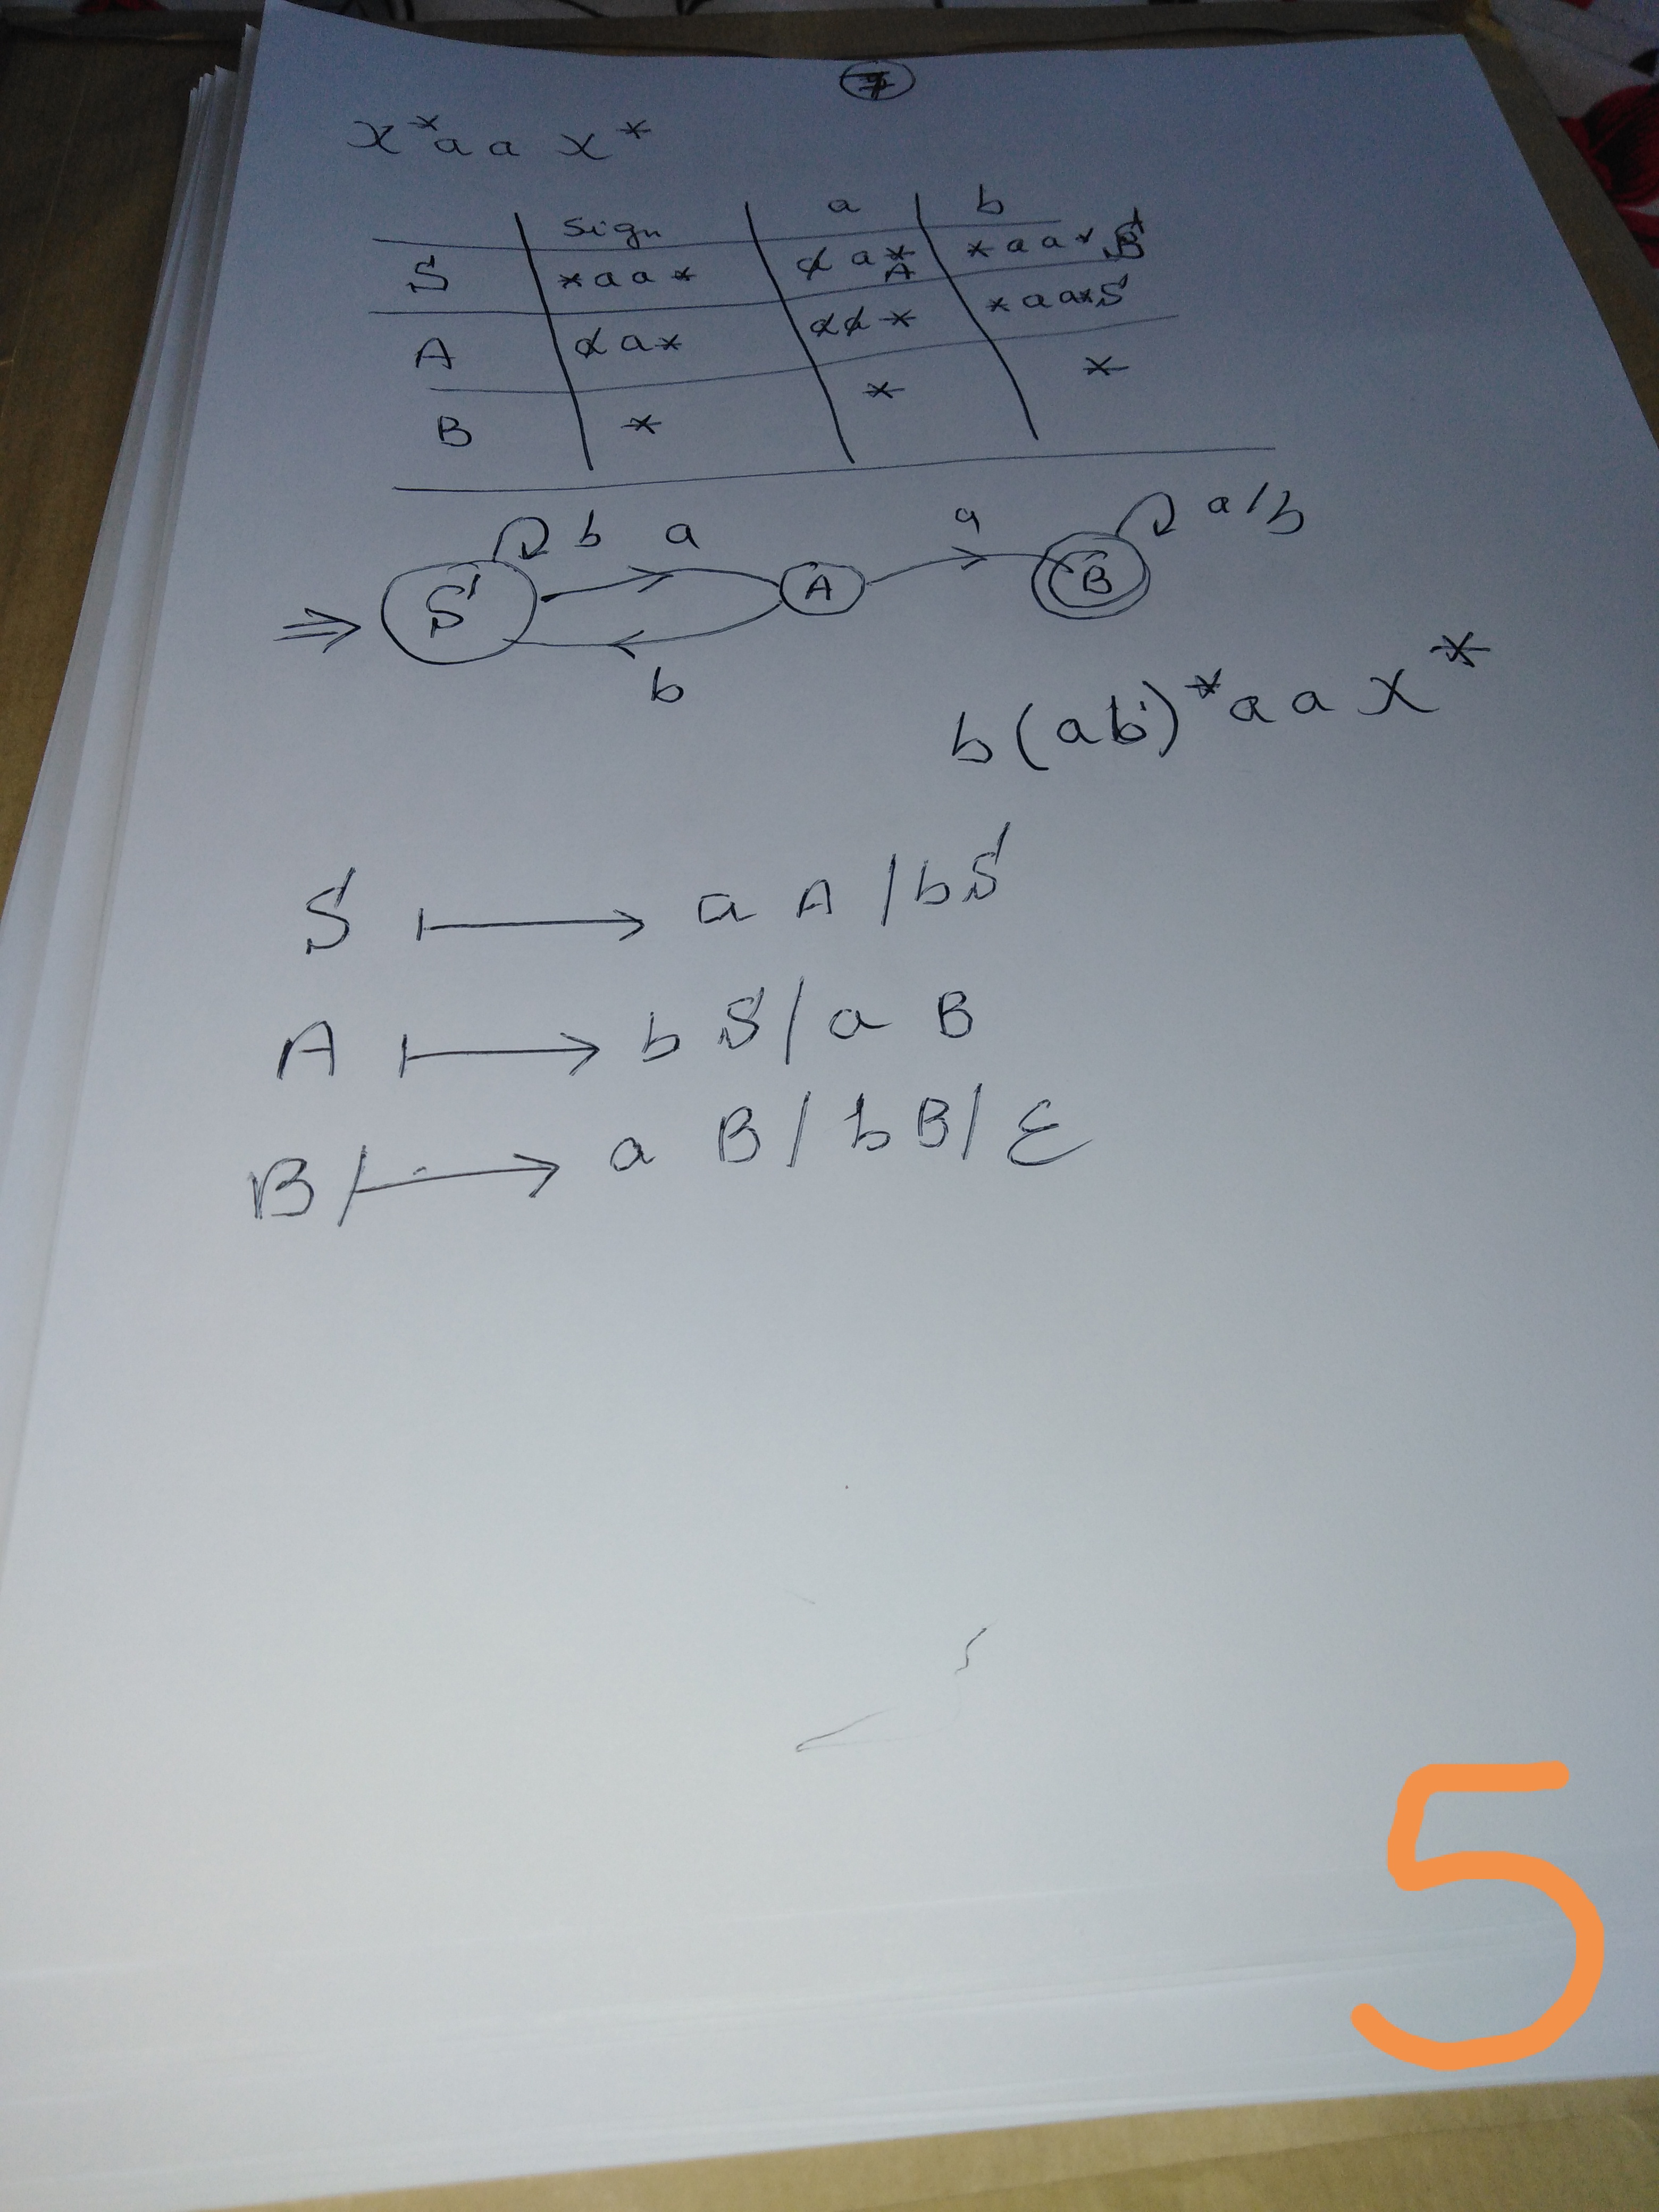 7
x*aa x*
sign a b
S *aa* a a* A *aa* S
A a a* a a * *aa* S
B * * *
b a a a/b
S A B
b
b(ab)*aa x*
S ⟼ a A / bS
A ⟼ b S / a B
B ⟼ a B / b B / ε
5